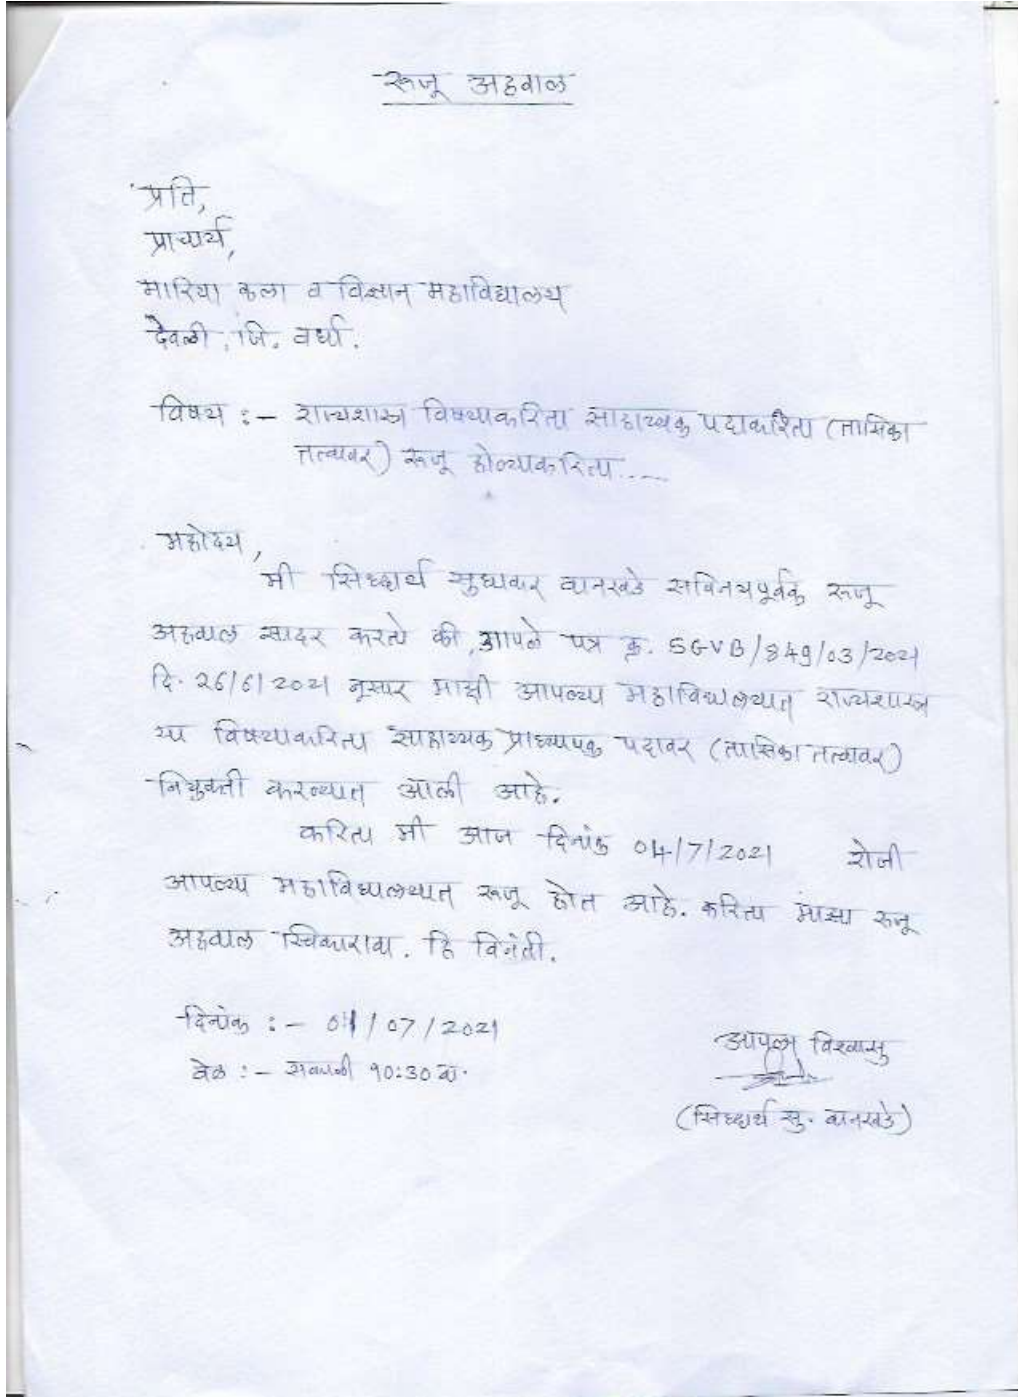 रूजू अहवाल
प्रति,
प्राचार्य,
मारिया कला व विज्ञान महाविद्यालय
देवळी, जि. वर्धा.
विषय :- राज्यशास्त्र विषयाकरिता साहाय्यक पदाकरिता (तासिका
तत्वावर) रूजू होण्याकरिता....
महोदय,
मी सिध्दार्थ सुधाकर वानखडे सविनयपूर्वक रूजू
अहवाल सादर करतो की, आपले पत्र क्र. SGVB/849/03/2021
दि. 26/6/2021 नुसार माझी आपल्या महाविद्यालयात राज्यशास्त्र
या विषयाकरिता साहाय्यक प्राध्यापक पदावर (तासिका तत्वावर)
नियुक्ती करण्यात आली आहे.
करिता मी आज दिनांक 04/7/2021 रोजी
आपल्या महाविद्यालयात रूजू होत आहे. करिता माझा रूजू
अहवाल स्विकारावा. हि विनंती.
दिनांक :- 01/07/2021
वेळ :- सकाळी 10:30 वा.
आपला विश्वासु
(सिध्दार्थ सु. वानखडे)